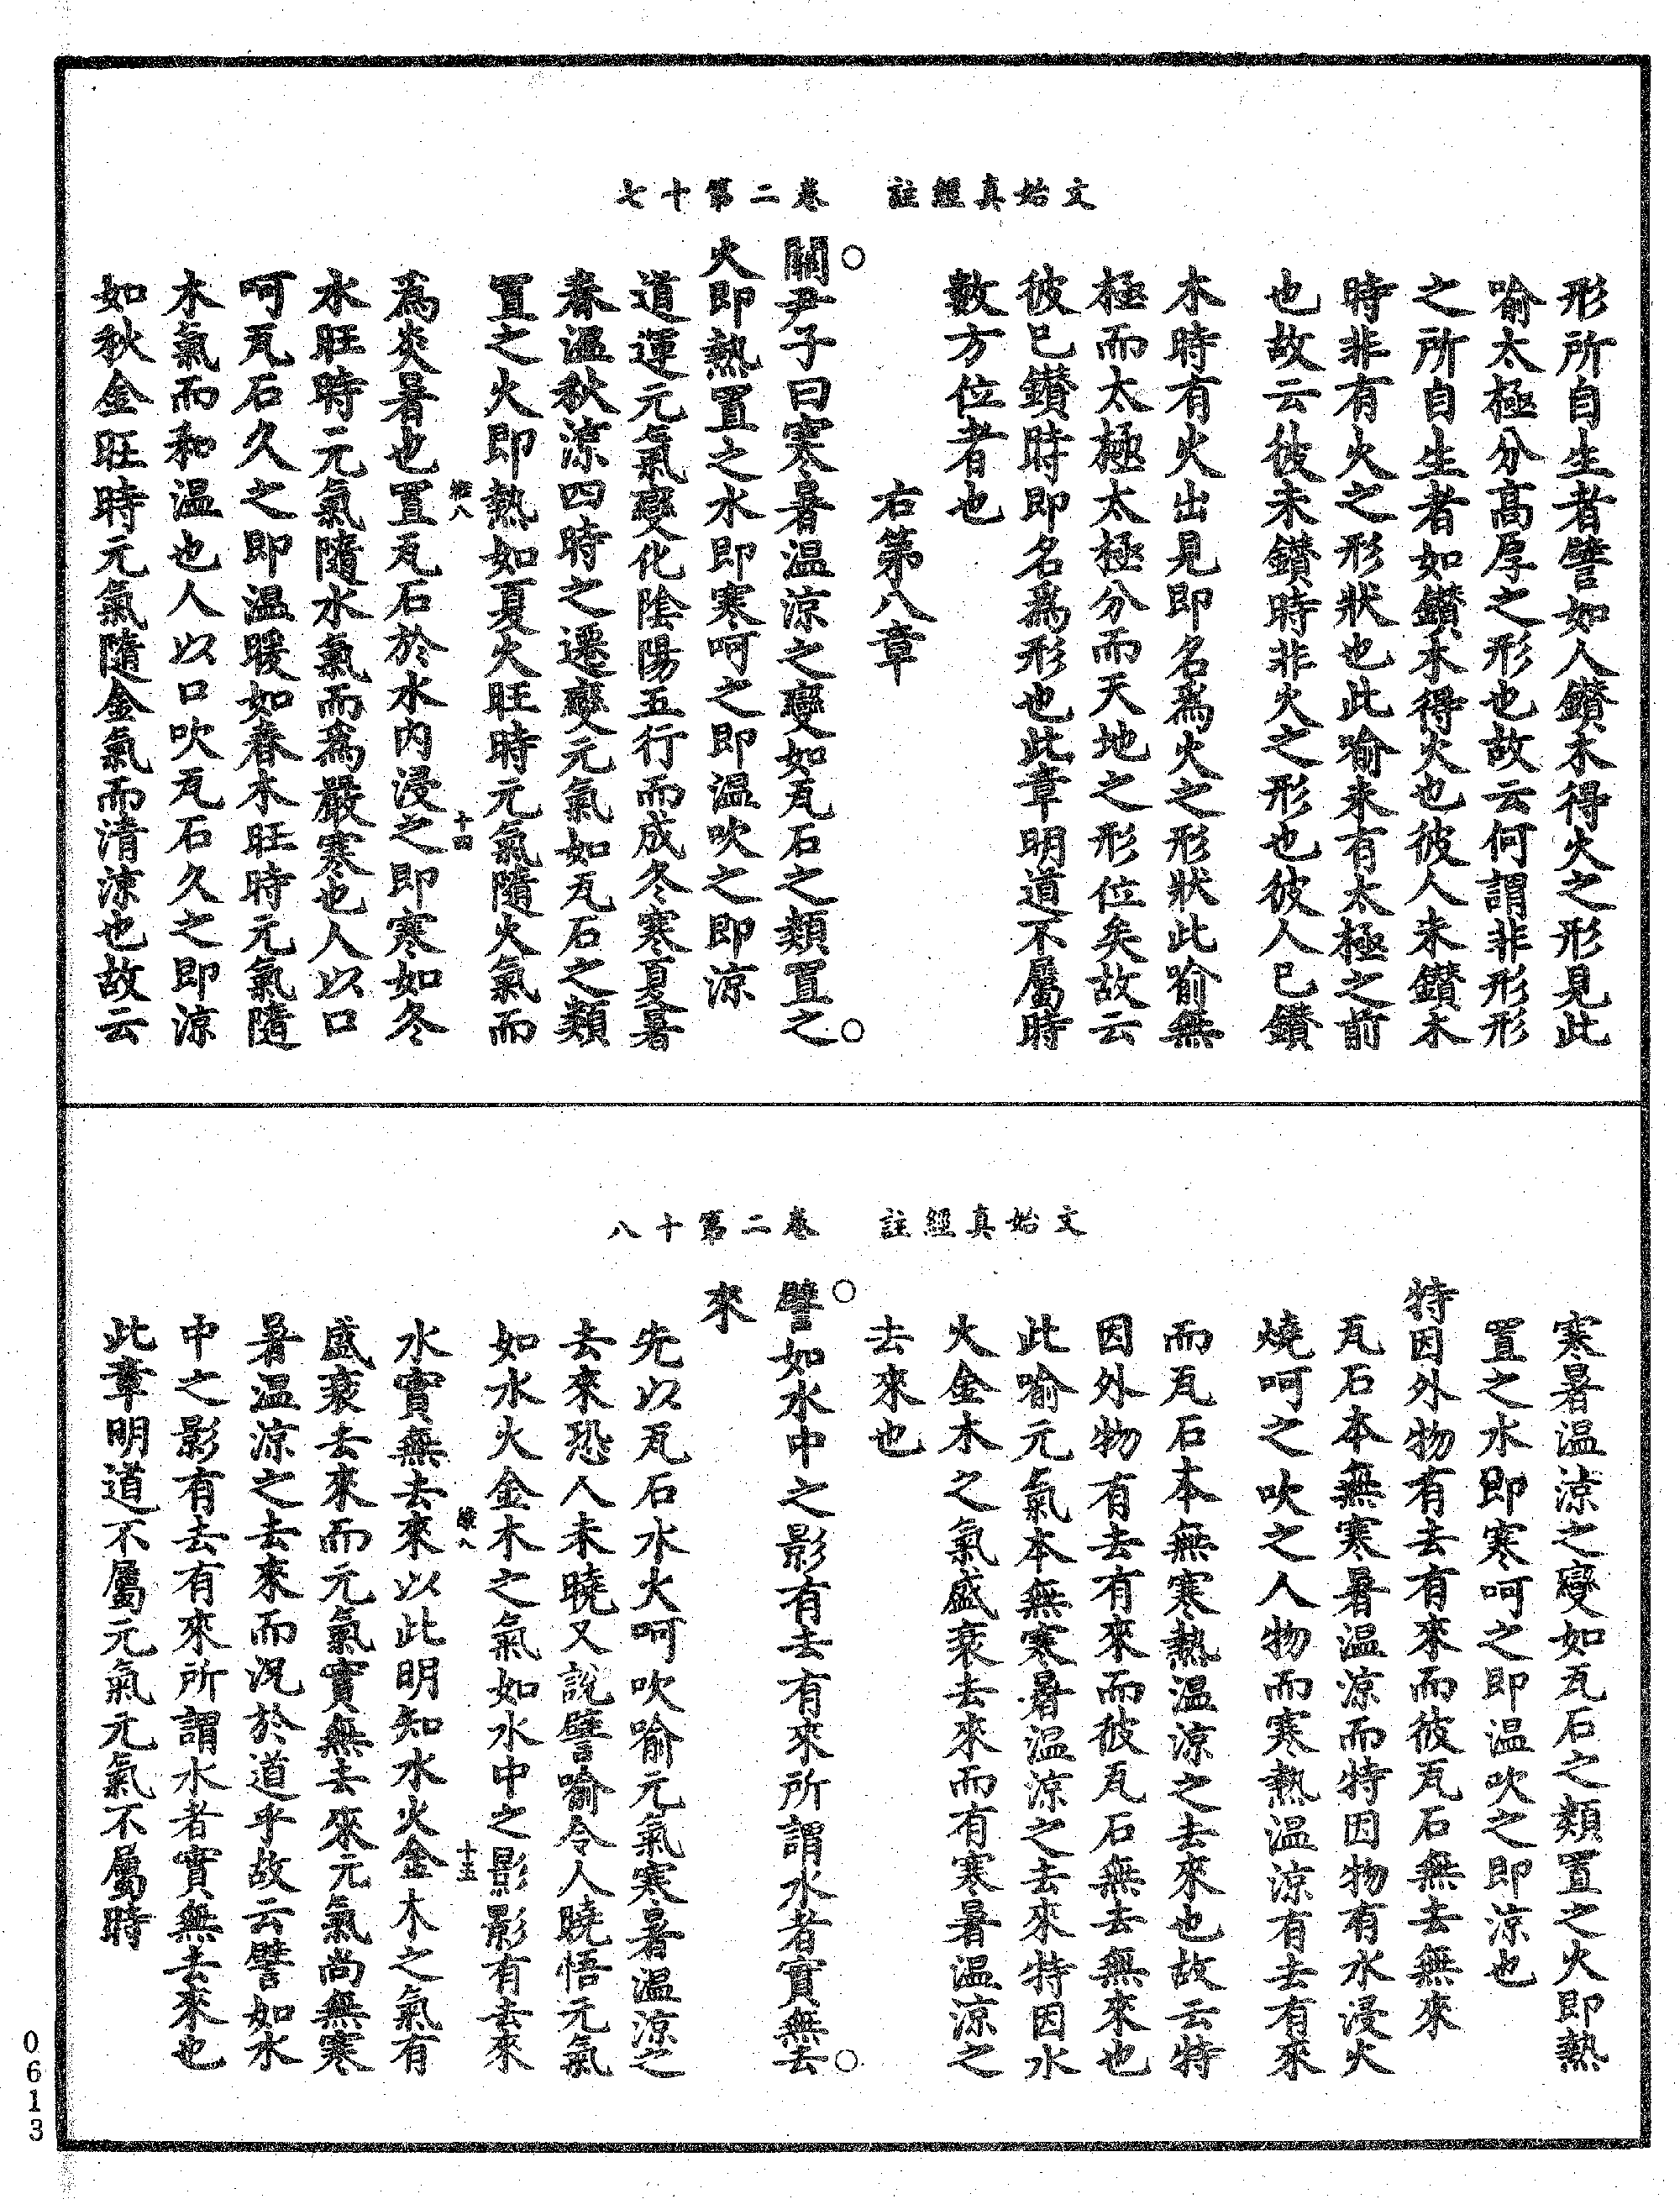 文始真經註　卷二第十七
形所自生者譬如人鑽木得火之形見此
喻太極分高厚之形也故云何謂非形形
之所自生者如鑽木得火也彼人未鑽木
時非有火之形狀也此喻未有太極之前
也故云彼未鑽時非火之形也彼人已鑽
木時有火出見即名爲火之形狀此喻無
極而太極太極分而天地之形位矣故云
彼已鑽時即名爲形也此章明道不屬時
數方位者也
右第八章
○關尹子曰寒暑温涼之變如瓦石之類置之○
火即熱置之水即寒呵之即温吹之即涼
道運元氣變化陰陽五行而成冬寒夏暑
春温秋涼四時之遷變元氣如瓦石之類
置之火即熱如夏火旺時元氣隨火氣而
十四
爲炎暑也置瓦石於水内浸之即寒如冬
水旺時元氣隨水氣而爲嚴寒也人以口
呵瓦石久之即温暖如春木旺時元氣隨
木氣而和温也人以口吹瓦石久之即涼
如秋金旺時元氣隨金氣而清涼也故云
文始真經註　卷二第十八
寒暑温涼之變如瓦石之類置之火即熱
置之水即寒呵之即温吹之即涼也
特因外物有去有來而彼瓦石無去無來
瓦石本無寒暑温涼而特因物有水浸火
燒呵之吹之人物而寒熱温涼有去有來
而瓦石本無寒熱温涼之去來也故云特
因外物有去有來而彼瓦石無去無來也
此喻元氣本無寒暑温涼之去來特因水
火金木之氣盛衰去來而有寒暑温涼之
去來也
○譬如水中之影有去有來所謂水者實無去○
來
先以瓦石水火呵吹喻元氣寒暑温涼之
去來恐人未曉又說譬喻令人曉悟元氣
如水火金木之氣如水中之影影有去來
十五
水實無去來以此明知水火金木之氣有
盛衰去來而元氣實無去來元氣尚無寒
暑温涼之去來而况於道乎故云譬如水
中之影有去有來所謂水者實無去來也
此章明道不屬元氣元氣不屬時
0613